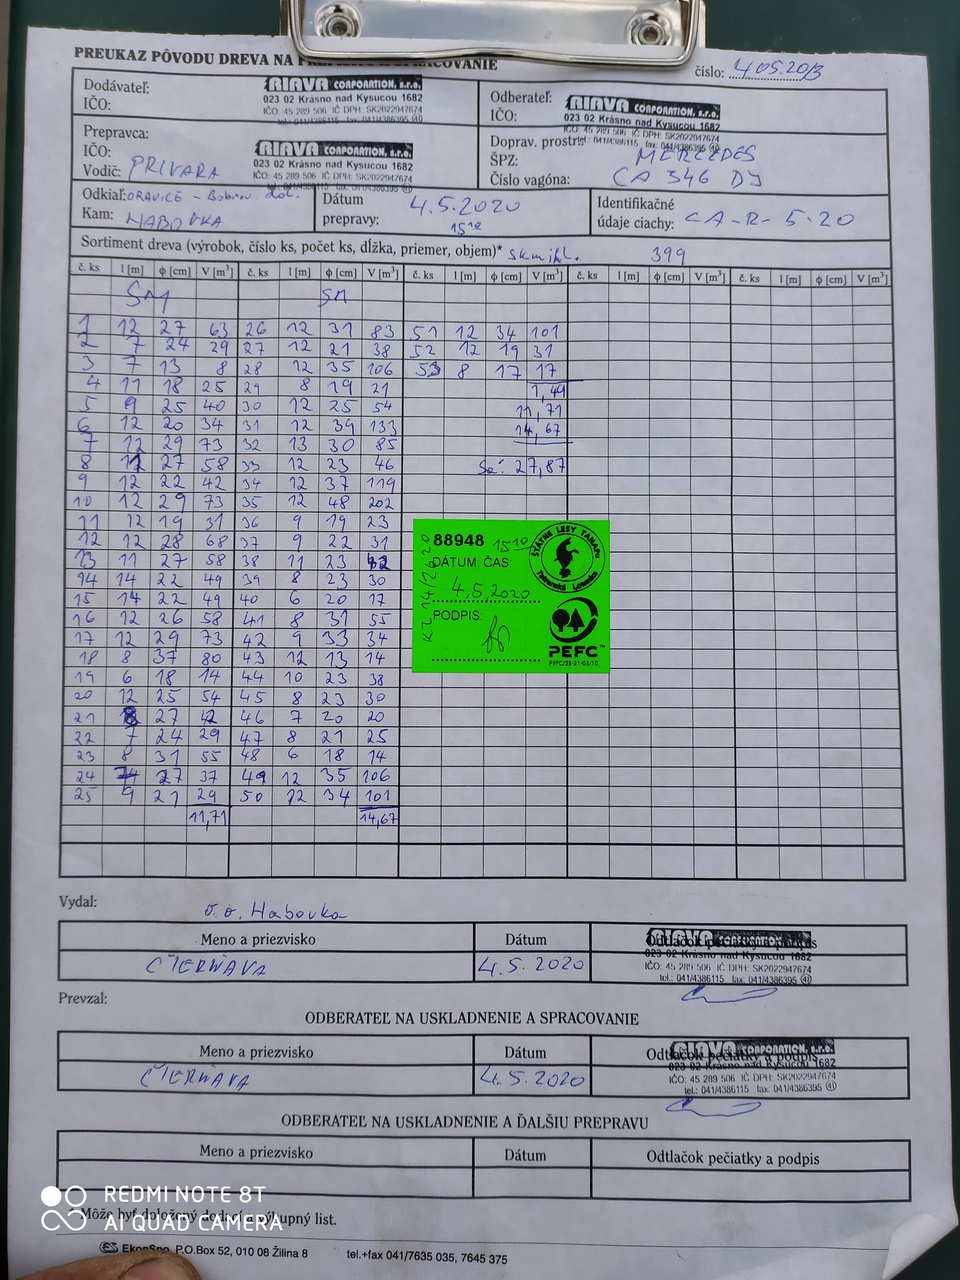 PREUKAZ PÔVODU DREVA NA SPRACOVANIE
číslo: 4.05.20/3
Dodávateľ:
IČO:
RIAVA CORPORATION, s.r.o.
023 02 Krásno nad Kysucou 1682
IČO: 45 289 506 IČ DPH: SK2022947674
tel.: 041/4386115 fax: 041/4386395
Odberateľ:
IČO:
RIAVA CORPORATION, s.r.o.
023 02 Krásno nad Kysucou 1682
IČO: 45 289 506 IČ DPH: SK2022947674
tel.: 041/4386115 fax: 041/4386395
Prepravca:
IČO:
Vodič: PRIVARA
RIAVA CORPORATION, s.r.o.
023 02 Krásno nad Kysucou 1682
IČO: 45 289 506 IČ DPH: SK2022947674
tel.: 041/4386115 fax: 041/4386395
Doprav. prostr.:
ŠPZ: MERCEDES
Číslo vagóna: CA 346 DJ
Odkiaľ: ORAVICE - Bobrov. dol.
Kam: HABOVKA
Dátum
prepravy: 4.5.2020
15 10
Identifikačné
údaje ciachy: CA-R-5-20
Sortiment dreva (výrobok, číslo ks, počet ks, dĺžka, priemer, objem)* 399
č. ks l [m] ϕ [cm] V [m³] č. ks l [m] ϕ [cm] V [m³] č. ks l [m] ϕ [cm] V [m³] č. ks l [m] ϕ [cm] V [m³] č. ks l [m] ϕ [cm] V [m³]
SM SM
1 12 27 63 26 12 31 83 51 12 34 101
2 7 24 29 27 12 21 38 52 12 19 31
3 7 13 8 28 12 35 106 53 8 17 17
4 11 18 25 29 8 19 21 1,49
5 9 25 40 30 12 25 54 11,71
6 12 20 34 31 12 39 133 14,67
7 12 29 73 32 13 30 85
8 11 27 58 33 12 23 46 Sa: 27,87
9 12 22 42 34 12 37 119
10 12 29 73 35 12 48 202
11 12 19 31 36 9 19 23
12 12 28 68 37 9 22 31
13 11 27 58 38 11 23 42
14 14 22 49 39 8 23 30
15 14 22 49 40 6 20 17
16 12 26 58 41 8 31 55
17 12 29 73 42 9 33 34
18 8 37 80 43 12 13 14
19 6 18 14 44 10 23 38
20 12 25 54 45 8 23 30
21 8 27 42 46 7 20 20
22 7 24 29 47 8 21 25
23 8 31 55 48 6 18 14
24 27 37 49 12 35 106
25 9 21 29 50 12 34 101
11,71 14,67
88948 15 10
DÁTUM: ČAS:
4.5.2020
PODPIS:
KZ 14/2620
ŠTÁTNE LESY TANAPu
Tatranská Lomnica
PEFC™
PEFC/23-21-03/10
Vydal: o.o. Habovka
Meno a priezvisko Dátum Odtlačok pečiatky a podpis
ČIERŇAVA 4.5.2020
RIAVA CORPORATION, s.r.o.
023 02 Krásno nad Kysucou 1682
IČO: 45 289 506 IČ DPH: SK2022947674
tel.: 041/4386115 fax: 041/4386395 41
Prevzal:
ODBERATEĽ NA USKLADNENIE A SPRACOVANIE
Meno a priezvisko Dátum Odtlačok pečiatky a podpis
ČIERŇAVA 4.5.2020
RIAVA CORPORATION, s.r.o.
023 02 Krásno nad Kysucou 1682
IČO: 45 289 506 IČ DPH: SK2022947674
tel.: 041/4386115 fax: 041/4386395 41
ODBERATEĽ NA USKLADNENIE A ĎALŠIU PREPRAVU
Meno a priezvisko Dátum Odtlačok pečiatky a podpis
* Môže byť doložený dodací a výkupný list.
EkonSpo P.O.Box 52, 010 08 Žilina 8 tel.+fax 041/7635 035, 7645 375
REDMI NOTE 8T
AI QUAD CAMERA